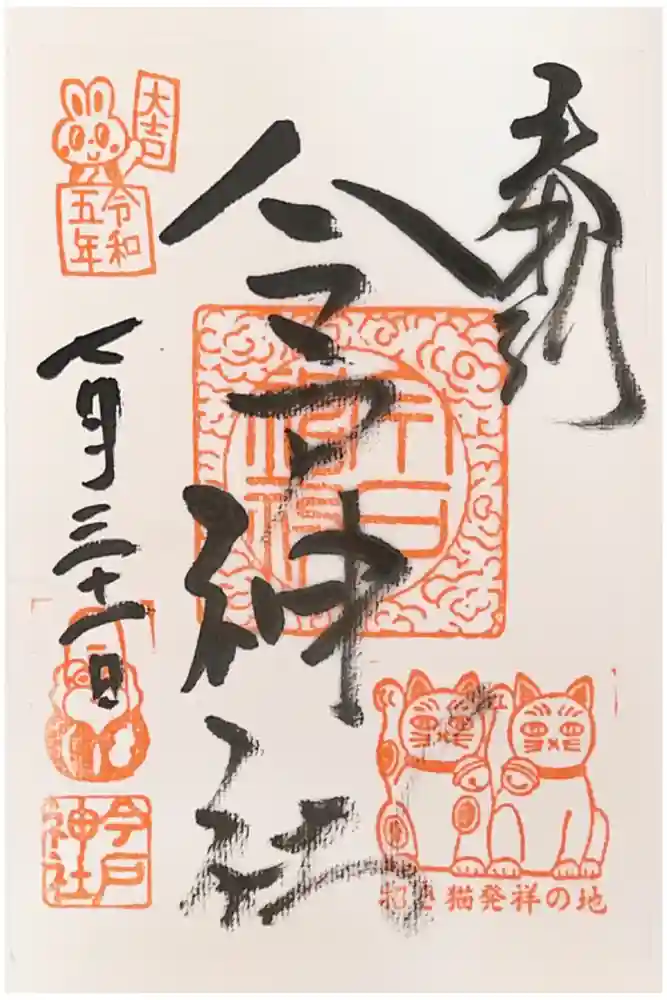 奉拝
今戸神社
今戸神社
招き猫発祥の地
大吉
令和
五年
七月三十一日
今戸
神社